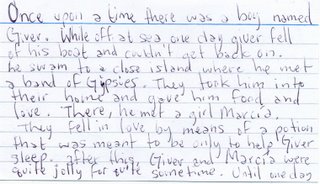 Once upon a time there was a boy named
Giver. While off at sea one day giver fell
of his boat and couldn't get back on.
he swam to a close island where he met
a band of Gipsies. They took him into
their home and gave him food and
love. There, he met a girl Marcia.
They fell in love by means of a potion
that was meant to be only to help Giver
sleep. after this, Giver and Marcia were
quite jolly for quite sometime. Until one day